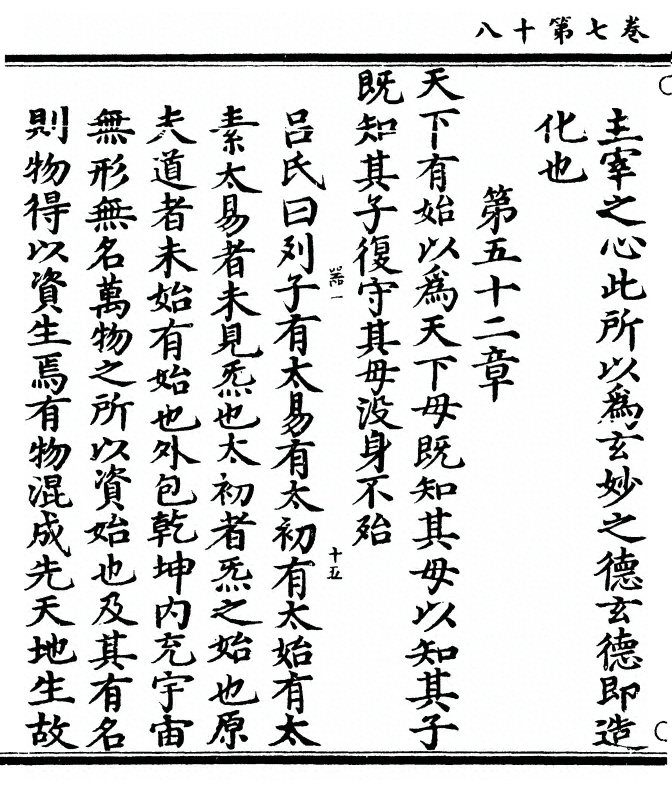 卷七第十八
主宰之心此所以爲玄妙之德玄德即造
化也
第五十二章
天下有始以爲天下母既知其母以知其子
既知其子復守其母没身不殆
器一
十五
呂氏曰列子有太易有太初有太始有太
素太易者未見炁也太初者炁之始也原
夫道者未始有始也外包乾坤内充宇宙
無形無名萬物之所以資始也及其有名
則物得以資生焉有物混成先天地生故